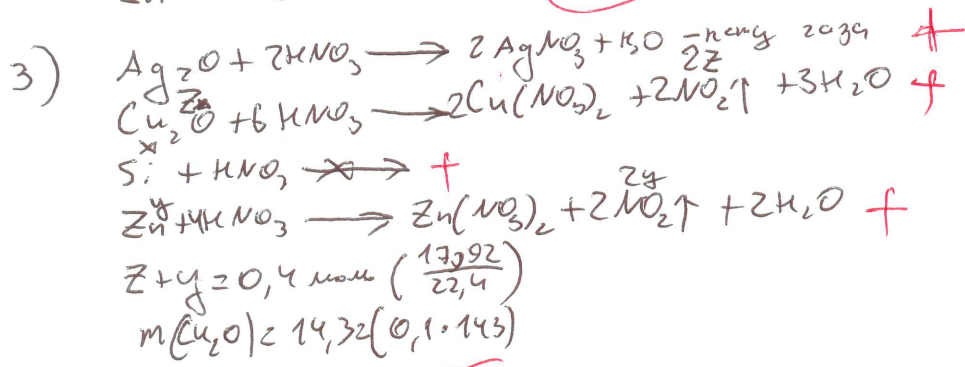 3) Ag₂O + 2HNO₃ ⟶ 2AgNO₃ + H₂O - нету газа +
Cu₂O + 6HNO₃ ⟶ 2Cu(NO₃)₂ + 2NO₂↑ + 3H₂O +
z 2z
Si + HNO₃ ⟶ +
x
Zn + 4HNO₃ ⟶ Zn(NO₃)₂ + 2NO₂↑ + 2H₂O +
y 2y
z + y = 0,4 моль (17,92/22,4)
m(Cu₂O) = 14,3г (0,1·143)